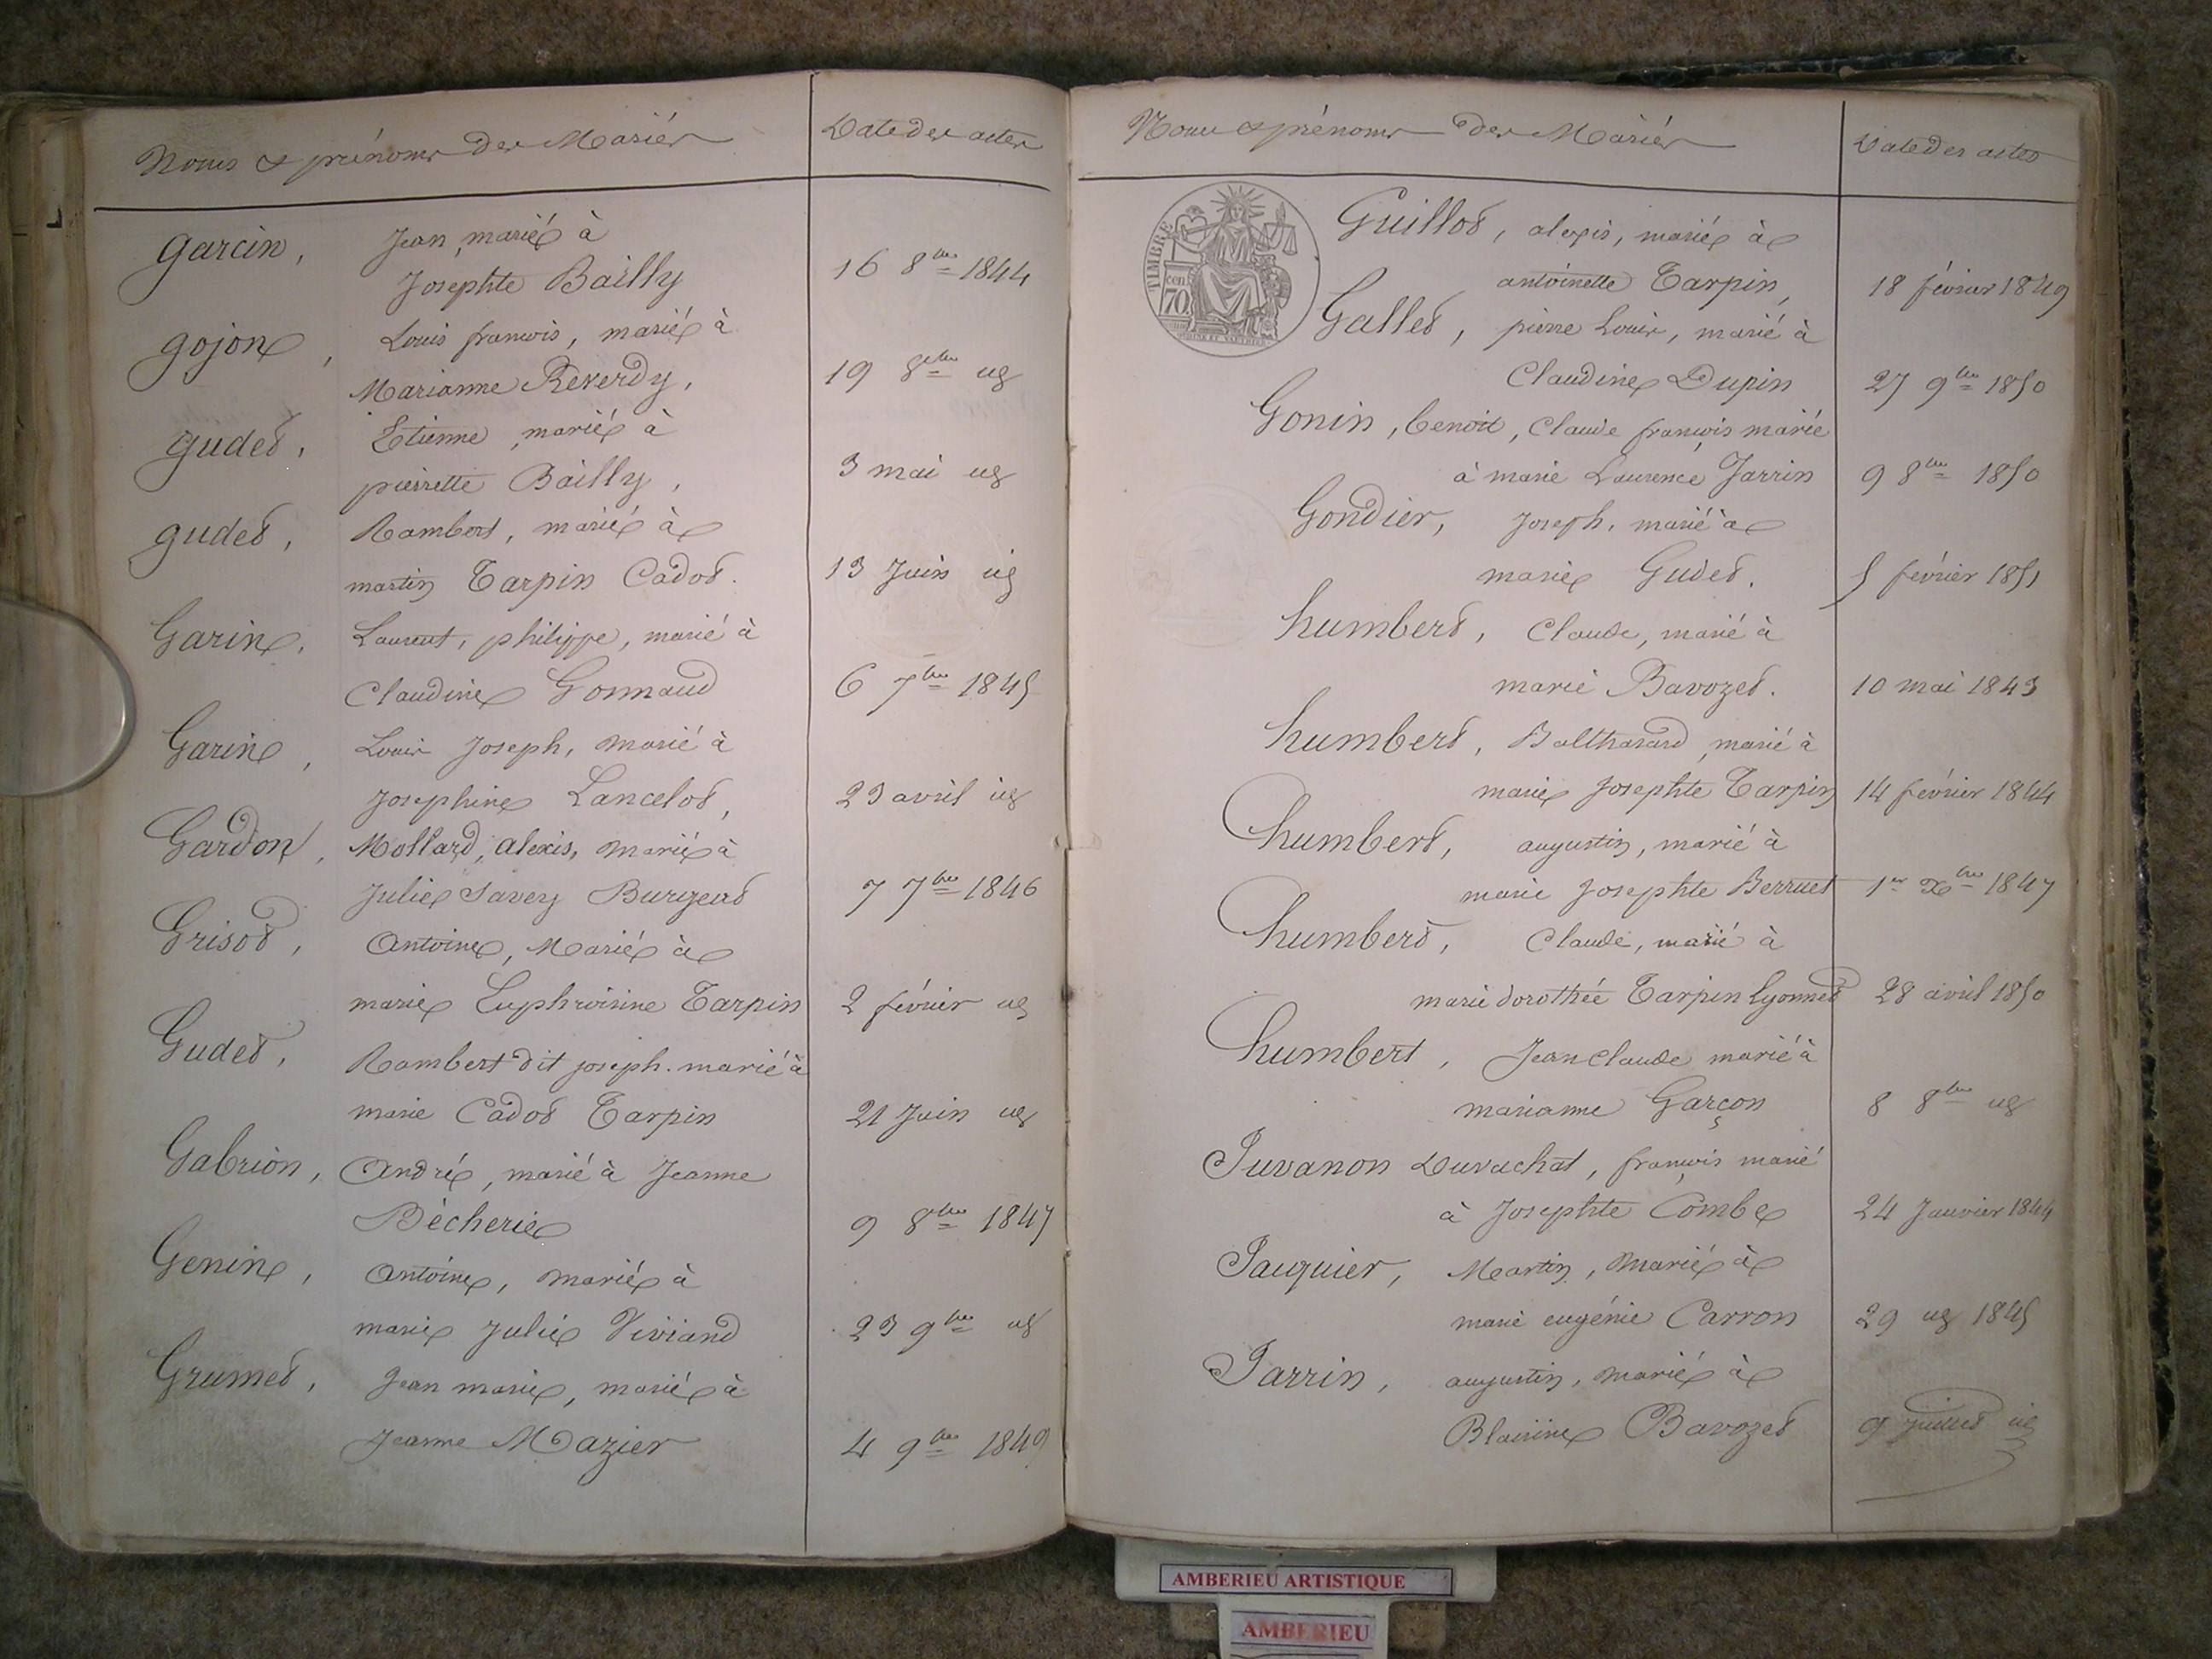 Noms & prénoms des Mariés
Date des actes
garcin, Jean, marié à
Josephte Bailly
16 8bre 1844
gojon, Louis françois, marié à
Marianne Reverdy,
19 8bre ug
gudet, Etienne, marié à
pierrette Bailly,
3 mai ug
gudet, Rambert, marié à
martin Tarpin Cadot.
13 Juin ug
Garin, Laurent, philippe, marié à
Claudine Gonnaud
6 7bre 1845
Garin, Louis Joseph, marié à
Josephine Lancelot,
23 avril ug
Gardon, Mollard, alexis, marié à
Julie Savey Burgeat
7 7bre 1846
Grisot, Antoine, Marié à
marie Euphroisine Tarpin
2 février ug
Gudet, Rambert dit joseph. marié à
marie Cadot Tarpin
21 Juin ug
Gabrion, André, marié à Jeanne
Bècherie
9 8bre 1847
Genin, Antoine, marié à
marie Julie Viviand
23 9bre ug
Grumet, Jean marie, marié à
Jeanne Mazier
4 9bre 1849
Noms & prénoms des Mariés
Date des actes
TIMBRE
cen.
70
Guillot, alexis, marié à
antoinette Tarpin,
18 février 1849
Gallet, pierre Louis, marié à
Claudine Dupin
27 9bre 1850
Gonin, benoit, Claude françois marié
à marie Laurence Jarrin
9 8bre 1850
Gondier, Joseph, marié à
marie Gudet.
5 février 1851
humbert, Claude, marié à
marie Bavozet.
10 mai 1843
humbert, Balthasard, marié à
marie Josephte Tarpin
14 février 1844
humbert, augustin, marié à
marie Josephte Berruet
1er Xbre 1847
humbert, Claude, marié à
marie dorothée Tarpin Lyonnet
28 avril 1850
humbert, Jean Claude marié à
marianne Garçon
8 8bre ug
Juvanon Duvachat, françois marié
à Josephte Combe
24 Janvier 1844
Jacquier, Martin, marié à
marie eugénie Carron
29 ug 1845
Jarrin, augustin, marié à
Blaisine Bavozet
9 juillet ug
AMBERIEU ARTISTIQUE
AMBERIEU